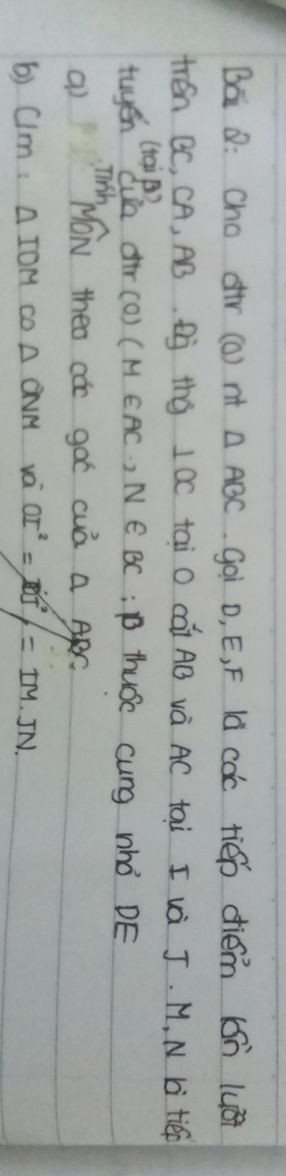 Bài 2: Cho đtr (O) nt Δ ABC. Gọi D, E, F là các tiếp điểm lần lượt
trên BC, CA, AB. đg thg ⊥ OC tại O cắt AB và AC tại I và J. M, N là tiếp
tuyến (tại P) của đtr (O) (M ∈ AC, N ∈ BC; P thuộc cung nhỏ DE
a) Tính MÔN theo các góc của Δ ABC.
b) C/m: Δ IOM ∽ Δ ONM và OI² = = IM. JN.